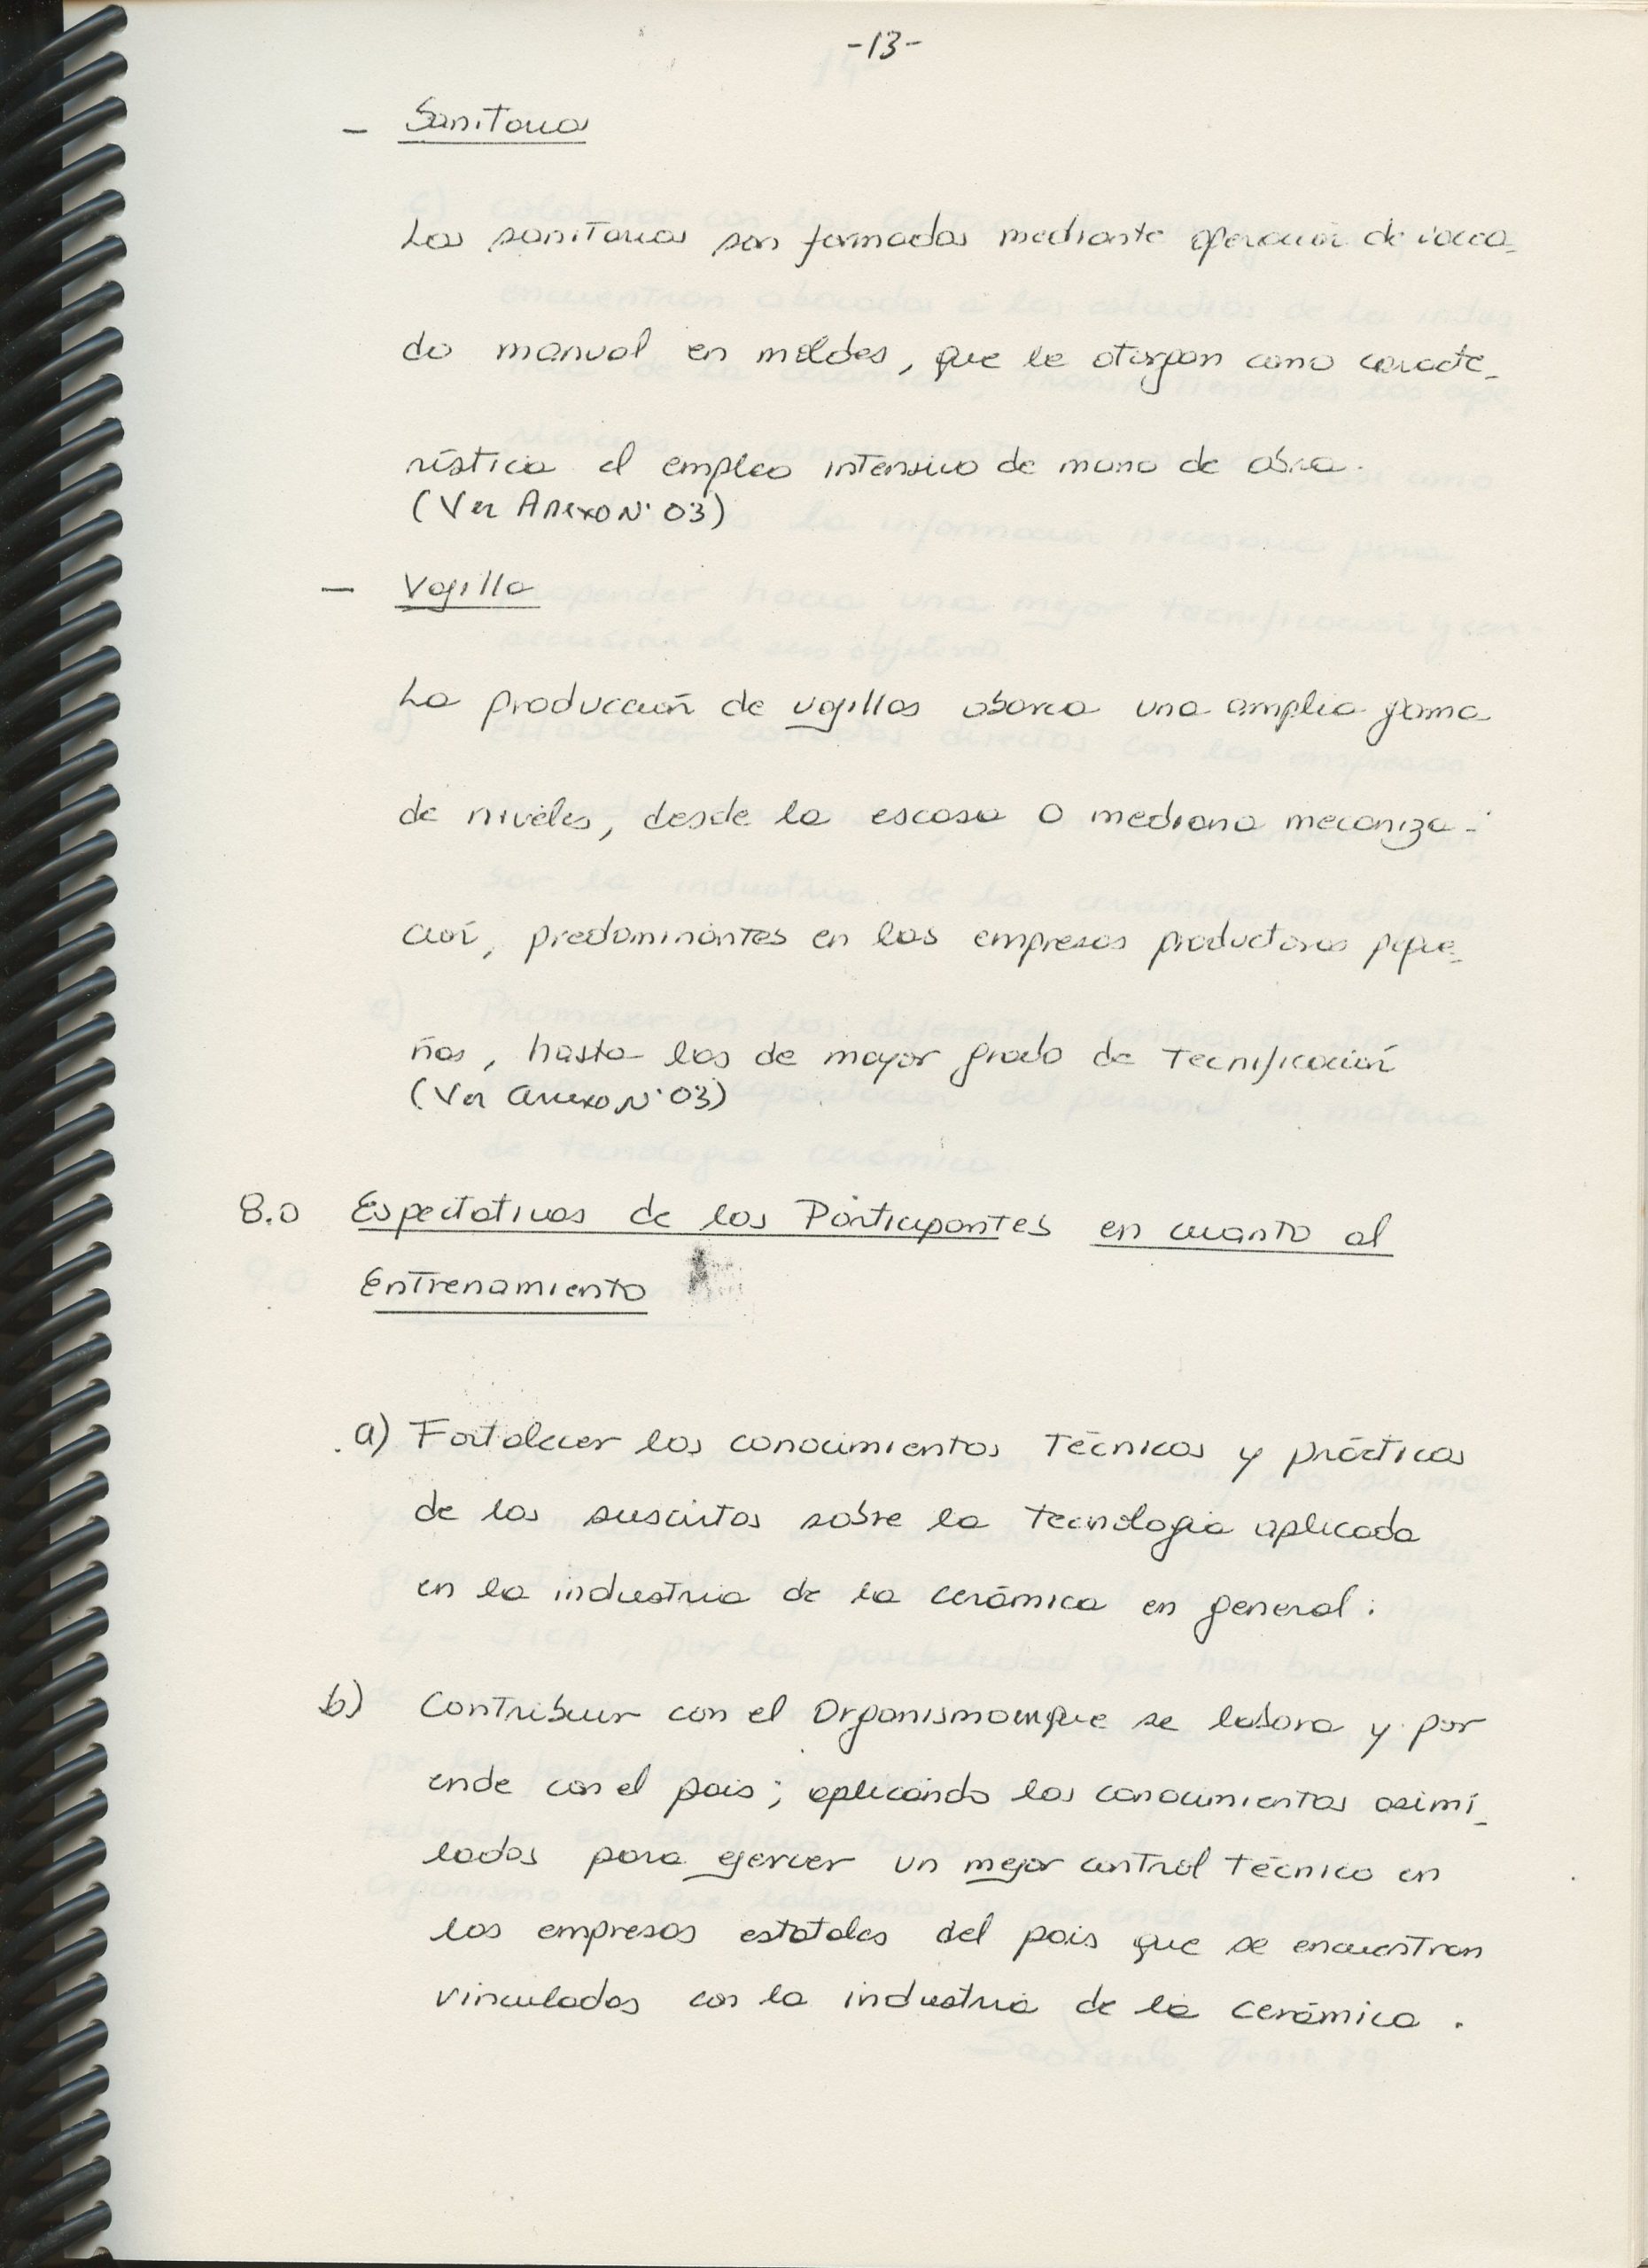 -13-
- Sanitarios
Los sanitarios son formados mediante operación de vacea-
do manual en moldes, que le otorgan como caracte-
rística el empleo intensivo de mano de obra.
(Ver Anexo N° 03)
- Vajilla
La producción de vajillas abarca una amplia gama
de niveles, desde la escasa o mediana mecaniza-
ción, predominantes en las empresas productoras peque-
ñas, hasta las de mayor grado de Tecnificación
(Ver anexo N° 03)
8.0 Espectativas de los Participantes en cuanto al
Entrenamiento
a) Fortalecer los conocimientos Técnicos y prácticos
de los suscritos sobre la Tecnología aplicada
en la industria de la cerámica en general.
b) Contribuir con el Organismo en que se labora y por
ende con el pais; aplicando los conocimientos asimi-
lados para ejercer un mejor control técnico en
las empresas estatales del pais que se encuentran
vinculados con la industria de la cerámica.